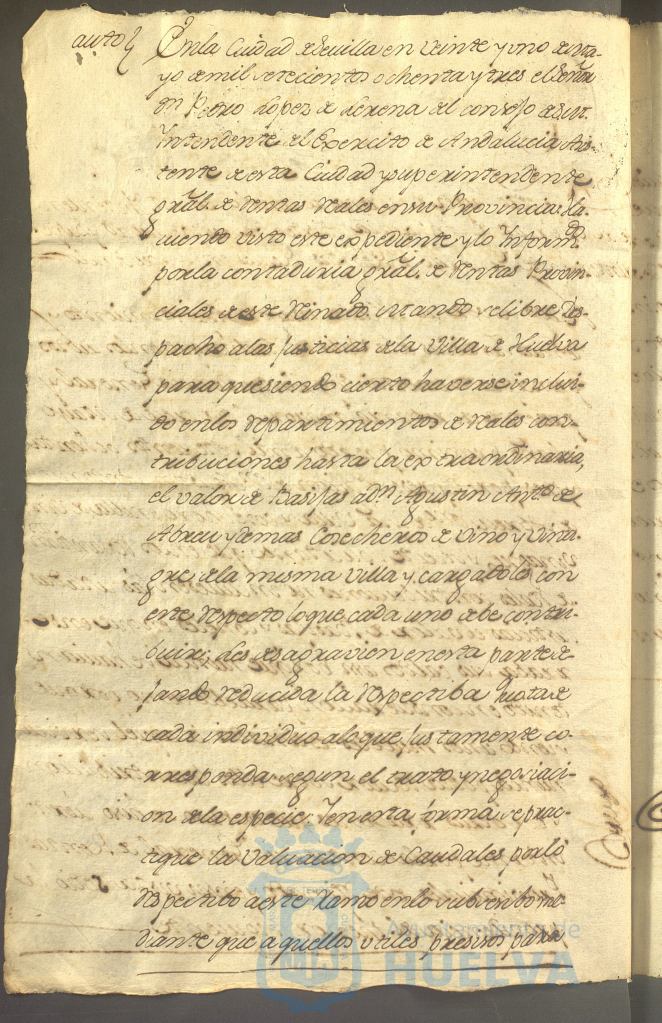 auto En la Ciudad de Sevilla en veinte y uno de Ma-
yo de mil setecientos ochenta y tres el Señor
Dn Pedro Lopez de Lerena del consejo de S.M.
Intendente del Exercito de Andalucia Asis-
tente de esta Ciudad y superintendente
gral. de Rentas reales en su Provincia: Ha-
viendo visto este expediente y lo Informdo
por la contaduria gral. de Rentas Provin-
ciales de este Reinado, mando se libre Des-
pacho a las Justicias de la Villa de Huelva
para que siendo cierto haverse inclui-
do en los repartimientos de reales con-
tribuciones hasta la extraordinaria,
el valor de Basijas a dn Agustin Anto. de
Abreu y demas Cosecheros de vino y vina-
gre de la misma Villa y cargadoles con
este respecto lo que cada uno debe contri-
buir; les desagravien en esta parte de-
jando reducida la respectiba quota de
cada individuo a lo que justamente co-
rresponda segun el trato y negociaci-
on de la especie. Y en esta forma se prac-
tique la Valuacion de Caudales por lo
respectibo a este Ramo en lo subcesibo me-
diante que aquellos utiles presisos para
Ayuntamiento de
HUELVA